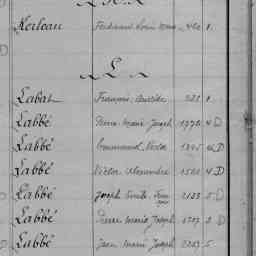 Kerleau Ferdinand Louis Marie 420 1.
L
Labat François, Aristide 1.
Labbé Pierre Marie Joseph 1778 4 D
Labbé Emmanuel, Victor 1845 4 D
Labbé Victor Alexandre 1580 4 D
Labbé Joseph Emile 2133 5 D
Labbé Pierre Marie Joseph 5 D
Labbé Jean Marie Joseph 5